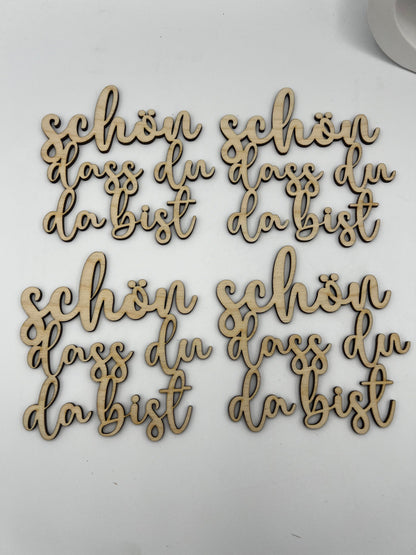 schön schön
dass du dass du
da bist da bist
schön schön
dass du dass du
da bist da bist